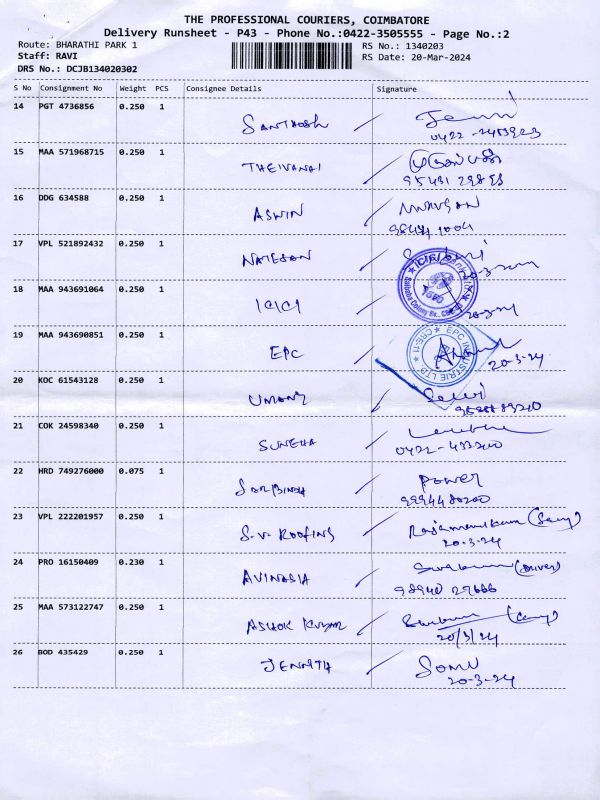 THE PROFESSIONAL COURIERS, COIMBATORE
Delivery Runsheet - P43 - Phone No.:0422-3505555 - Page No.:2
Route: BHARATHI PARK 1 RS No.: 1340203
Staff: RAVI RS Date: 20-Mar-2024
DRS No.: DCJB134020302
S No Consignment No Weight PCS Consignee Details Signature
14 PGT 4736856 0.250 1
SANTHOSH
15 MAA 571968715 0.250 1
THEIVANAI
16 DDG 634588 0.250 1
ASWIN
17 VPL 521892432 0.250 1
NATESAN
18 MAA 943691064 0.250 1
ICICI
19 MAA 943690851 0.250 1
EPC
EPC INDUSTRIE LTD
20-3-24
20 KOC 61543128 0.250 1
UMANG Selvi
21 COK 24598340 0.250 1
SUNEHA
22 HRD 749276000 0.075 1
Power
9994480200
23 VPL 222201957 0.250 1
S.V. ROOFING
20-3-24
24 PRO 16150409 0.230 1
AVINASIA
98940 27666
25 MAA 573122747 0.250 1
ASHOK KUMAR
20/3/24
26 BOD 435429 0.250 1
JENNITH SOMU
20-3-24